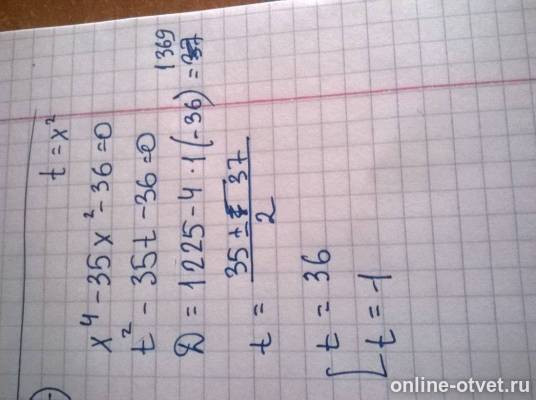 t = x²
x⁴ - 35x² - 36 = 0
t² - 35t - 36 = 0
D = 1225 - 4 · 1 (-36) = 1369
t = (35 ± 37) / 2
[ t = 36
t = -1
online-otvet.ru